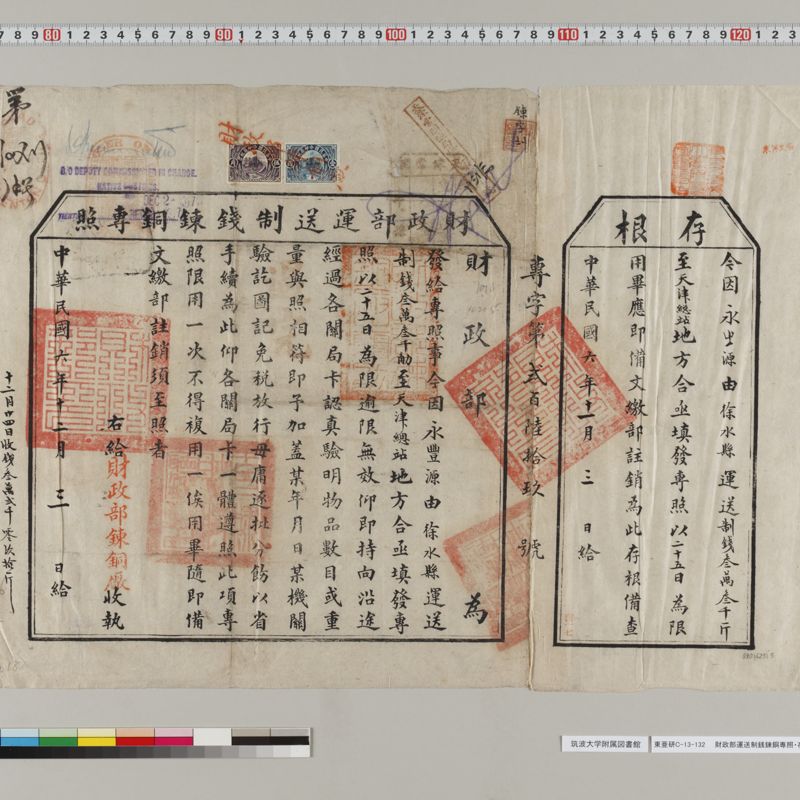 財政部運送制錢鍊銅專照
財政部為
發給專照事今因永豐源由徐水縣運送
制錢叁萬叁千觔至天津總站地方合亟填發專
照以二十五日為限逾限無效仰即持向沿途
經過各關局卡認真驗明物品數目或重
量與照相符即予加蓋某年月日某機關
驗訖圖記免稅放行毋庸逐批分飭以省
手續為此仰各關局卡一體遵照此項專
照限用一次不得複用一俟用畢隨即備
文繳部註銷須至照者
右給財政部鍊銅廠收執
中華民國六年十二月三日給
十二月廿四日收錢叁萬弍千零玖拾斤
專字第弍百陸拾玖號
存根
令因永豐源由徐水縣運送制錢叁萬叁千斤
至天津總站地方合亟填發專照以二十五日為限
用畢應即備文繳部註銷為此存根備查
中華民國六年十二月三日給
第
D/O DEPUTY COMMISSIONER IN CHARGE.
NATIVE CUSTOMS.
DEC 2
筑波大学附属図書館
東亜研C-13-132
財政部運送制銭錬銅専照・
80
90
100
110
120